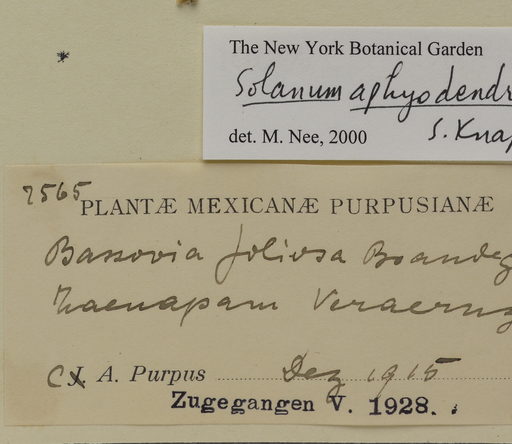 The New York Botanical Garden
Solanum aphyodendr
det. M. Nee, 2000 S. Knap
7565
PLANTÆ MEXICANÆ PURPUSIANÆ
Bassovia foliosa Brandeg
Zacuapam Veracruz
C. A. Purpus Dez 1915
Zugegangen V. 1928.